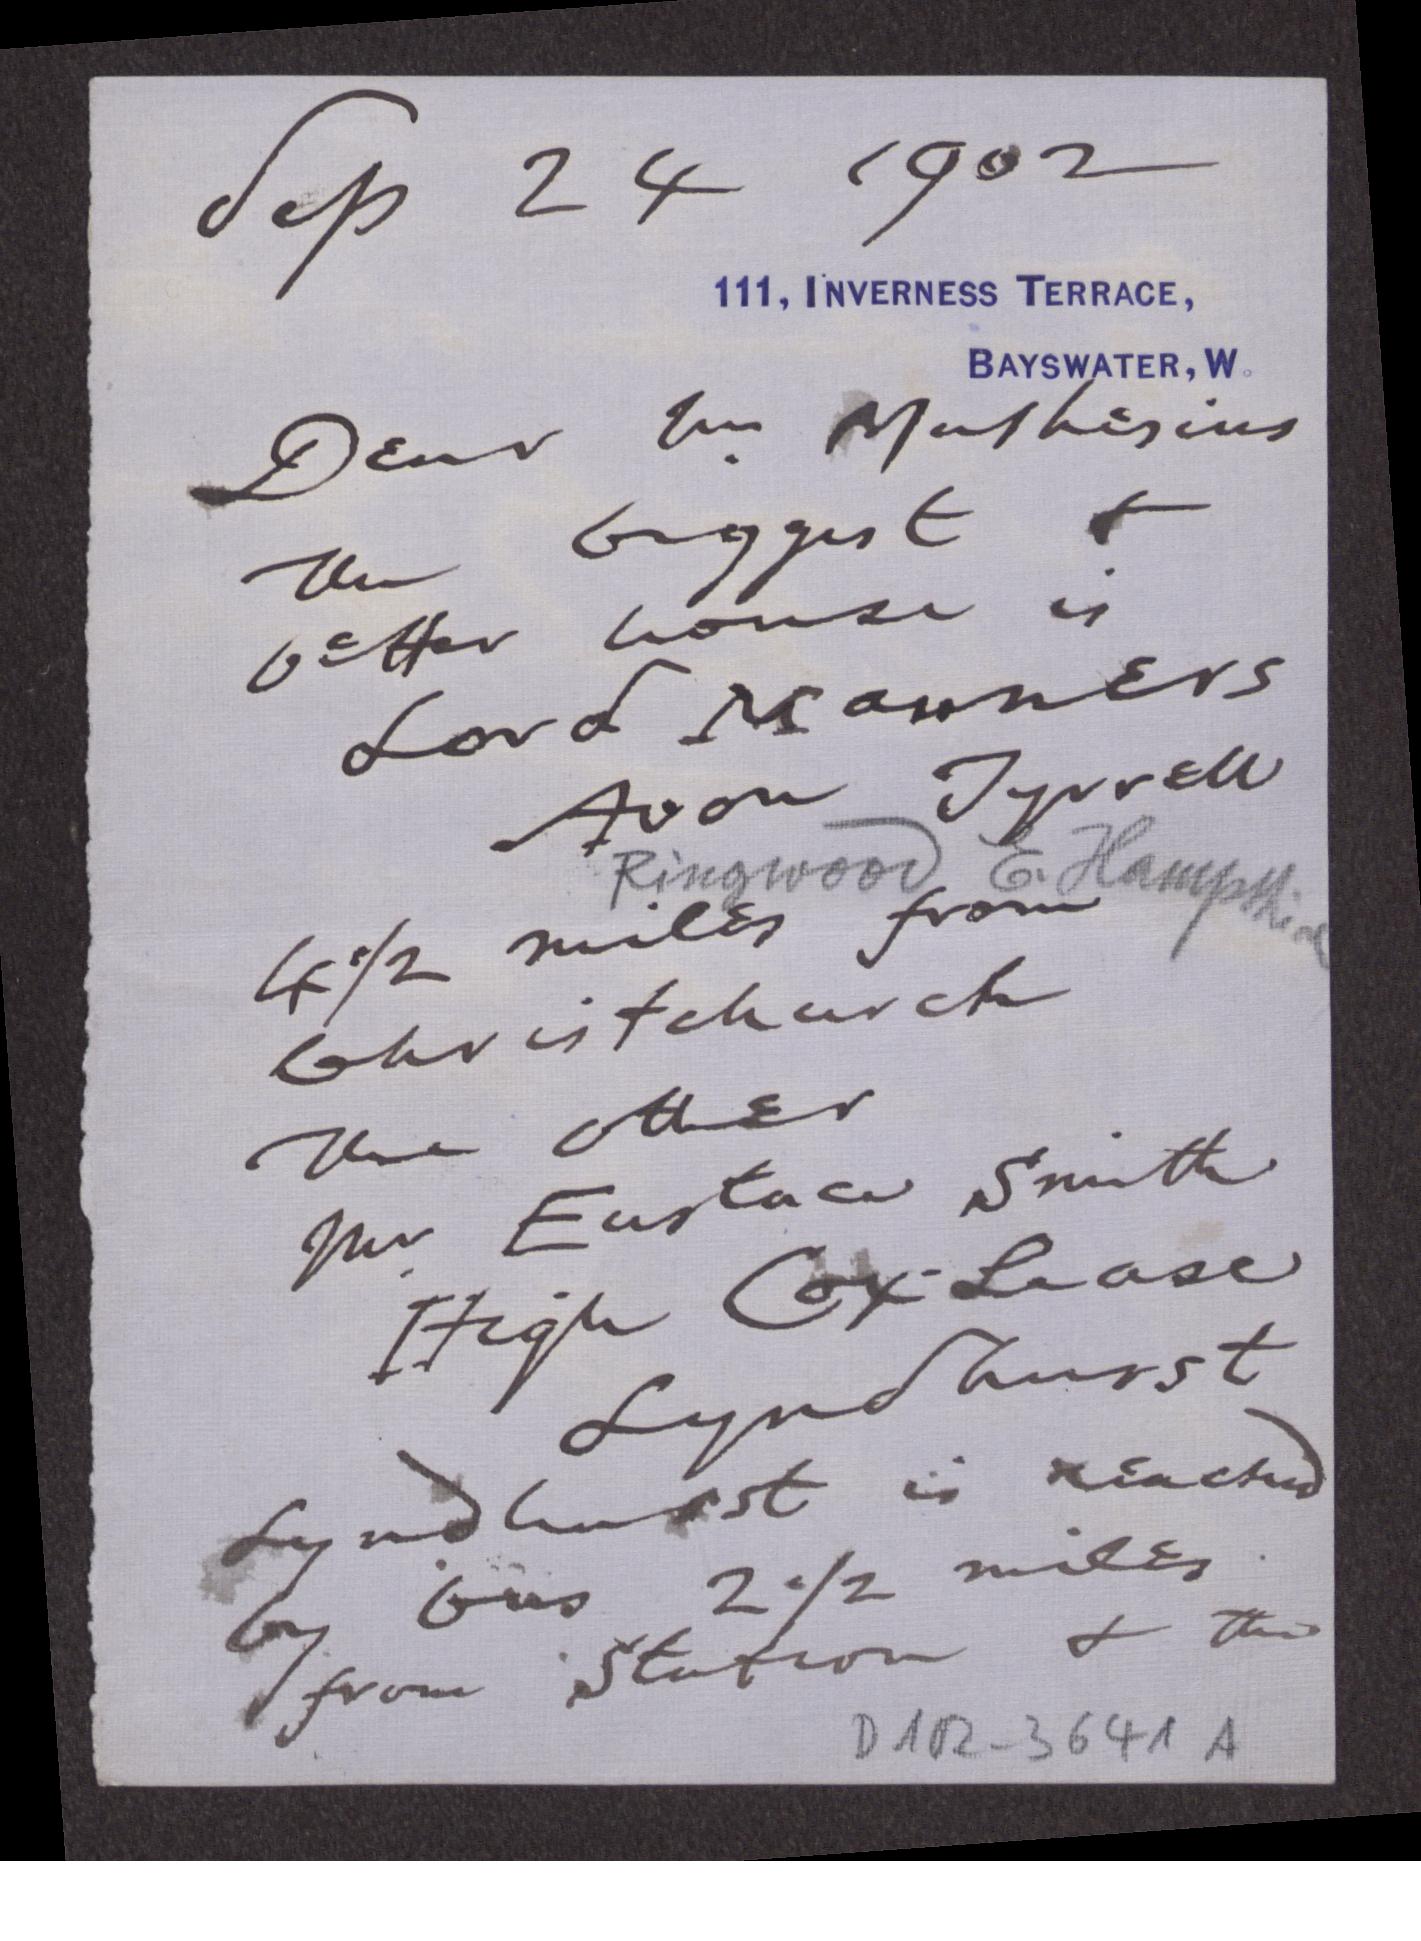 Sep 24 1902
111, INVERNESS TERRACE,
BAYSWATER, W.
Dear Mr. Muthesius
The biggest &
better house is
Lord Manners
Avon Tyrrell
Ringwood E. Hampshire
4 1/2 miles from
Christchurch
The other
Mr. Eustace Smith
High Cox-Lease
Lyndhurst
Lyndhurst is reached
by bus 2 1/2 miles
from Station & the
D 102-3641 A